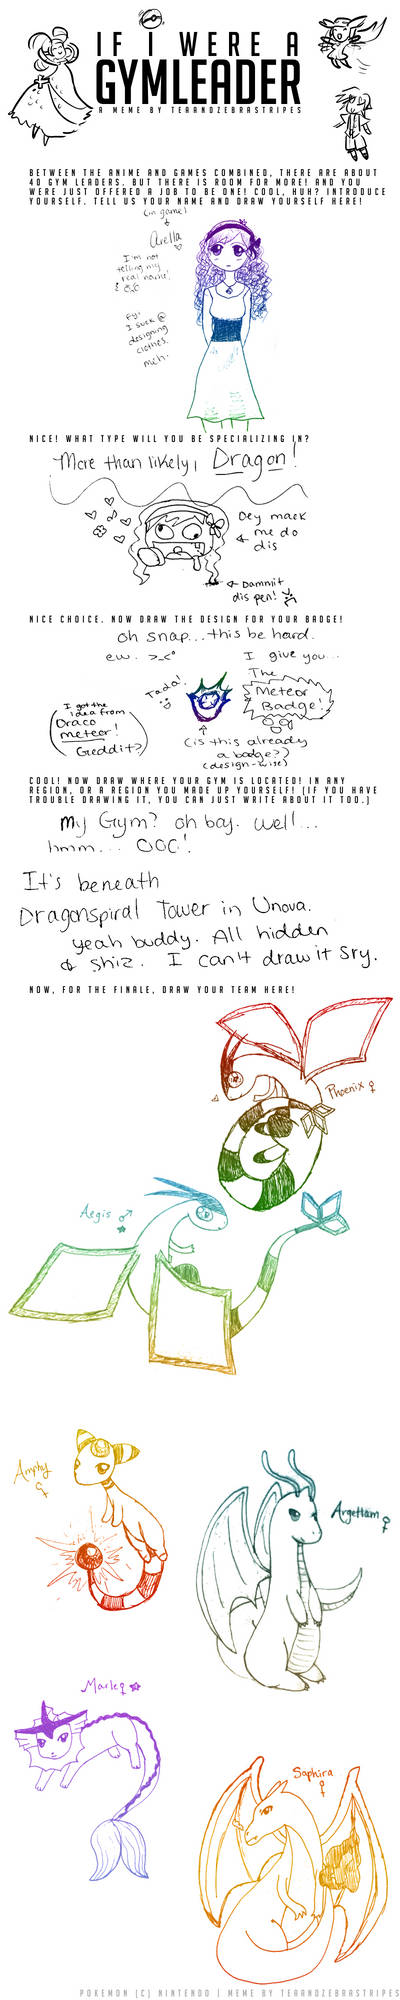 IF I WERE A
GYMLEADER
A MEME BY TEAANDZEBRASTRIPES
BETWEEN THE ANIME AND GAMES COMBINED, THERE ARE ABOUT
40 GYM LEADERS. BUT THERE IS ROOM FOR MORE! AND YOU
WERE JUST OFFERED A JOB TO BE ONE! COOL, HUH? INTRODUCE
YOURSELF. TELL US YOUR NAME AND DRAW YOURSELF HERE!
(in game)
Arella
I'm not
telling my
real name!
fyi
I suck @
designing
clothes.
meh.
NICE! WHAT TYPE WILL YOU BE SPECIALIZING IN?
More than likely, Dragon!
Dey maek
me do
dis
Dammit
dis pen!
NICE CHOICE. NOW DRAW THE DESIGN FOR YOUR BADGE!
oh snap...this be hard.
ew. >_<°
I give you...
The
Meteor
Badge!
Tada!
(I got the
idea from
Draco
meteor!
Geddit?)
(is this already
a badge??)
(design-wise)
COOL! NOW DRAW WHERE YOUR GYM IS LOCATED! IN ANY
REGION, OR A REGION YOU MADE UP YOURSELF! (IF YOU HAVE
TROUBLE DRAWING IT, YOU CAN JUST WRITE ABOUT IT TOO.)
My Gym? oh boy. well...
hmm... OOC!
It's beneath
Dragonspiral Tower in Unova.
yeah buddy. All hidden
& shiz. I can't draw it sry.
NOW, FOR THE FINALE, DRAW YOUR TEAM HERE!
Phoenix ♀
Aegis ♂
Amphy ♀
Argetlam ♀
Marle ♀
Saphira ♀
POKEMON (C) NINTENDO | MEME BY TEAANDZEBRASTRIPES